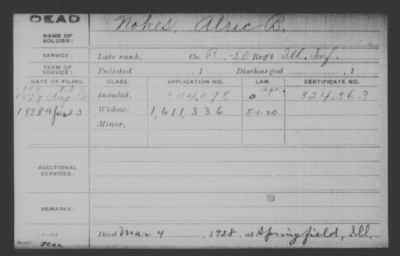 DEAD
Nokes, Alric B.
NAME OF SOLDIER:
SERVICE: Late rank, Co. B, 30 Reg't Ill. Inf.
TERM OF SERVICE: Enlisted , 1 Discharged , 1
DATE OF FILING. CLASS. APPLICATION NO. LAW. CERTIFICATE NO.
1879 Aug. 12 Invalid, 304,075 324,363
1928 Apr 3 Widow, 1,611,336 5-1-20
Minor,
ADDITIONAL SERVICES:
REMARKS:
Died Mar. 4 1928, at Springfield, Ill.